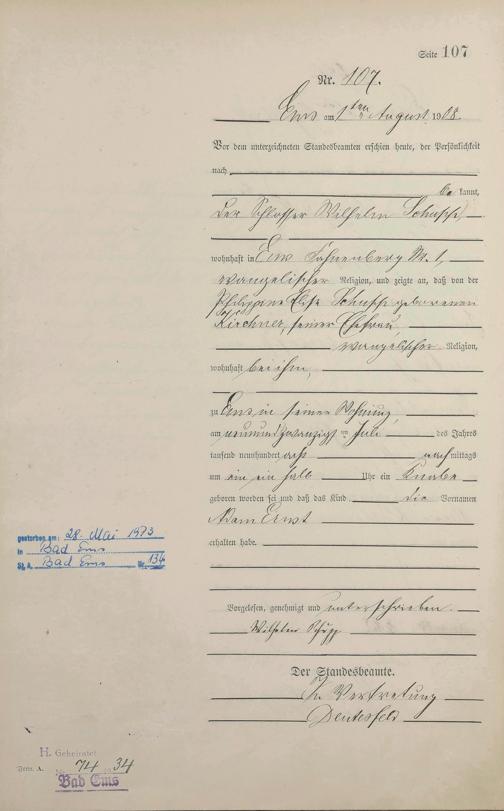 Seite 107
Nr. 107.
Ems am 1ten August 1908.
Vor dem unterzeichneten Standesbeamten erschien heute, der Persönlichkeit
nach
be kannt,
der Schlosser Wilhelm
wohnhaft in Ems Nr. 1,
evangelischer Religion, und zeigte an, daß von der
Philippine Elise geborenen
Kirchner, seiner Ehefrau,
evangelischer Religion,
wohnhaft bei ihm,
zu Ems in seiner Wohnung,
am neunundzwanzigsten Juli des Jahres
tausend neunhundert acht nach mittags
um ein ein halb Uhr ein Knabe
geboren worden sei und daß das Kind die Vornamen
Adam Ernst
erhalten habe.
Vorgelesen, genehmigt und unterschrieben.
Wilhelm
Der Standesbeamte.
In Vertretung
gestorben am: 28. Mai 1973
in Bad Ems
St. A. Bad Ems Nr. 134
H. Geheiratet
74 34
Bad Ems